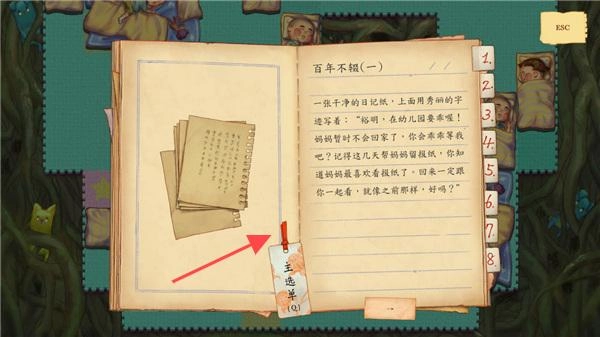 ESC
百年不辍(一)
一张干净的日记纸，上面用秀丽的字
迹写着：“裕明，在幼儿园要乖喔！
妈妈暂时不会回家了，你会乖乖等我
吧？记得这几天帮妈妈留报纸，你知
道妈妈最喜欢看报纸了。回来一定跟
你一起看，就像之前那样，好吗？”
1.
2
3.
4.
5.
6.
7.
8
主选单
(Q)
→